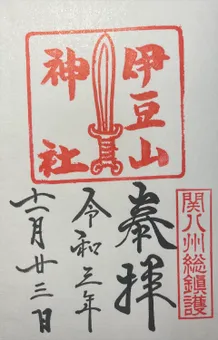 伊豆山
神社
関八州総鎮護
奉拝
令和三年
十一月廿三日